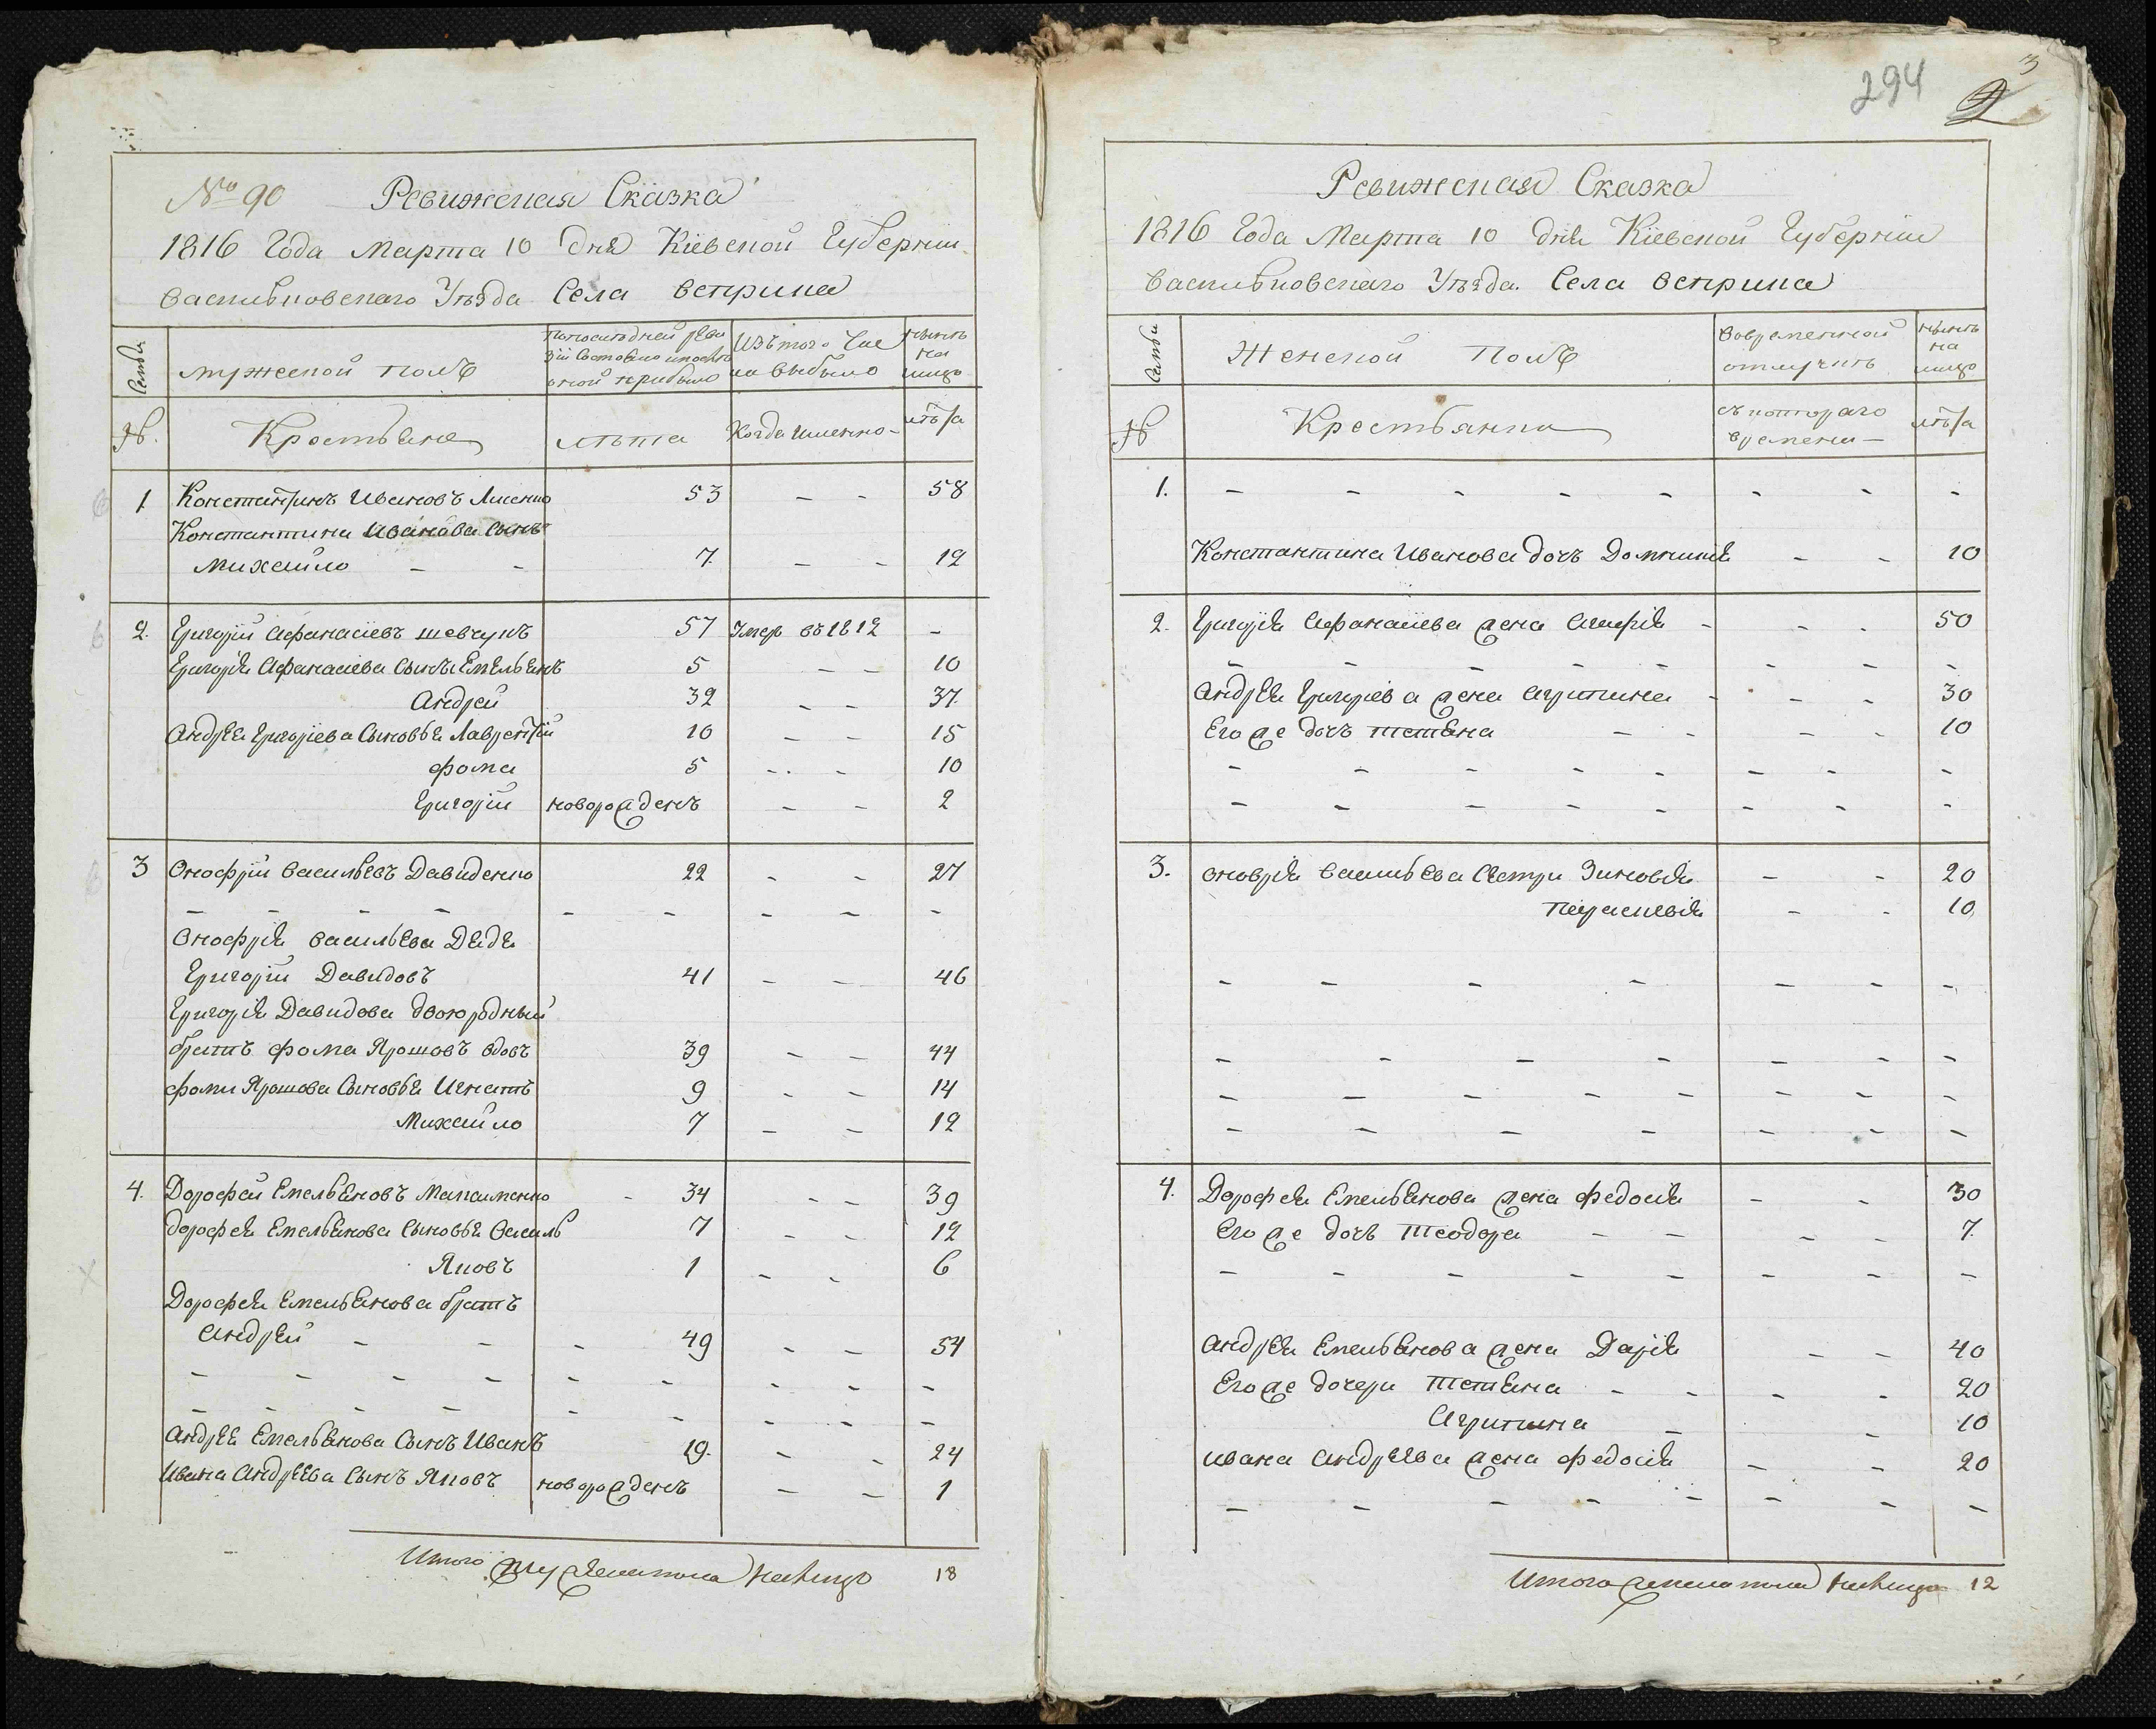 № 90 Ревижская Сказка
1816 Года Марта 10 Дня Кіевской Губерніи
Васильковского Уѣзда Села Ветрина
Семьи
мужеской полъ
По последней реви
зіи Состояло и после
оной прибыло
Изъ того Чис
ла выбыло
нынѣ
на
лицо
№.
Крестьяне
лѣта
Когда именно
лѣта
1 Константинъ Ивановъ 53 - - 58
Константина Иванова Сынъ
Михайло - - 7. - - 12
2. Григорій Афанасіевъ шевчукъ 57 Умер въ 1812 -
Григорія Афанасіева Сынъ Емельянъ 5 - - 10
Андрей 32 - - 37.
Андрея Григоріева Сыновья Лаврентій 10 - - 15
фома 5 - - 10
Григорій новорожденъ - - 2
3 Онофрій Васильевъ Давиденко 22 - - 27
- - - - - - - - -
Онофрія Васильева Дядя
Григорій Давидовъ 41 - - 46
Григорія Давидова двоюродный
братъ фома Ярошовъ вдовъ 39 - - 44
фомы Ярошова Сыновья Игнатъ 9 - - 14
Михайло 7 - - 12
4. Дорофей Емельяновъ - 34 - - 39
Дорофея Емельянова Сыновья Василь 7 - - 12
Яковъ 1 - - 6
Дорофея Емельянова братъ
Андрей - - - 49 - - 54
- - - - - - - - -
- - - - - - - - -
Андрея Емельянова Сынъ Иванъ 19. - - 24
Ивана Андреева Сынъ Яковъ новорожденъ - - 1
Итого мужеска пола на лицо 18
294
3
2
Ревижская Сказка
1816 Года Марта 10 дня Кіевской Губерніи
Васильковского Уѣзда. Села Ветрина
Семьи
Женской Полъ
Во временной
отлучкѣ
нынѣ
на
лицо
№
Крестьянки
съ которого
времени
лѣта
1. - - - - - - - -
Константина Иванова дочь Домникія - - 10
2. Григорія Афанасіева жена - - - 50
- - - - - - - -
Андрея Григоріева жена Агрипина - - - 30
Его же дочь Тетяна - - - - 10
- - - - - - - -
- - - - - - - -
3. Оновріа Васильева Сестри Зиновія - - 20
Параскевія - - 10
- - - - - - -
- - - - - - -
- - - - - - - -
- - - - - - -
4. Дорофея Емельянова жена Федосія - - 30
Его же дочь Теодора - - - - 7.
- - - - - - - -
Андрея Емельянова жена Дарія - - 40
Его же дочери Тетяна - - - - 20
Агрипина - - 10
Ивана Андреева жена Федосія - - 20
- - - - - - - -
Итого женска пола на лицо 12